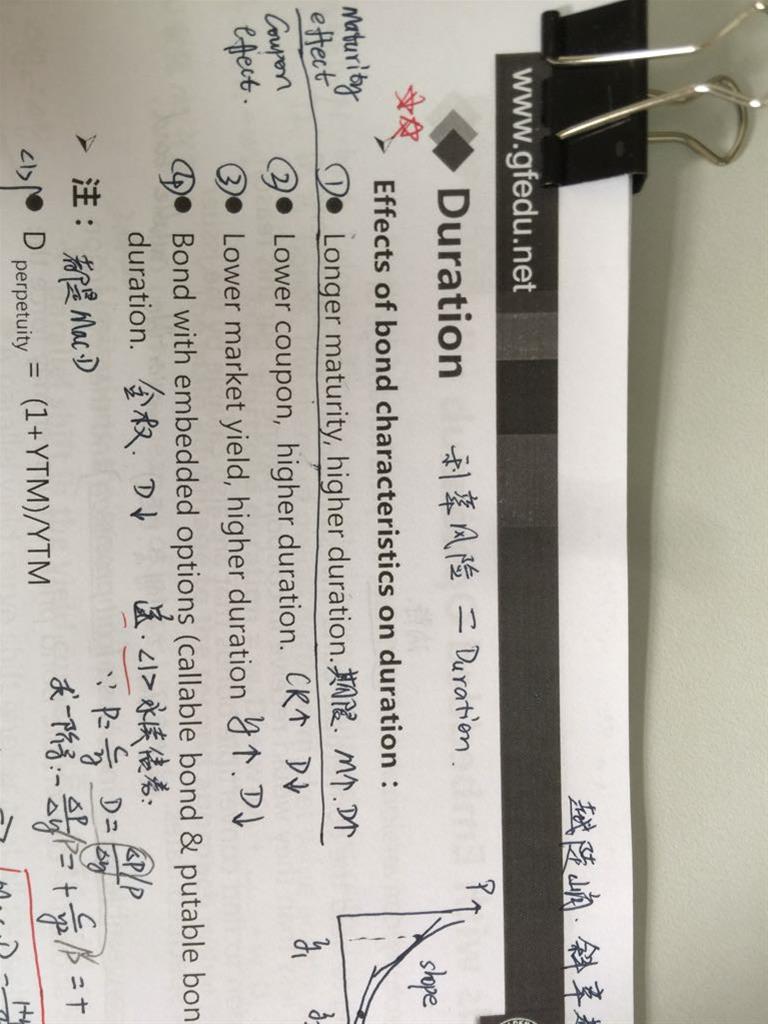 www.gfedu.net
越陡峭. 斜率
Duration 利率风险 = Duration.
Effects of bond characteristics on duration:
maturity effect ① • Longer maturity, higher duration. 期限. M↑. D↑
Coupon effect. ② • Lower coupon, higher duration. CR↑ D↓
③ • Lower market yield, higher duration y↑. D↓
④ • Bond with embedded options (callable bond & putable bon
duration. 含权. D↓
<1>永续债券:
注: 都是Mac.D
∵ P = C/y D = ΔP/P / Δy
<1> • D perpetuity = (1+YTM)/YTM
求一阶导: - ΔP/Δy /P = + C/y² /P = +
P↑
slope
y₁